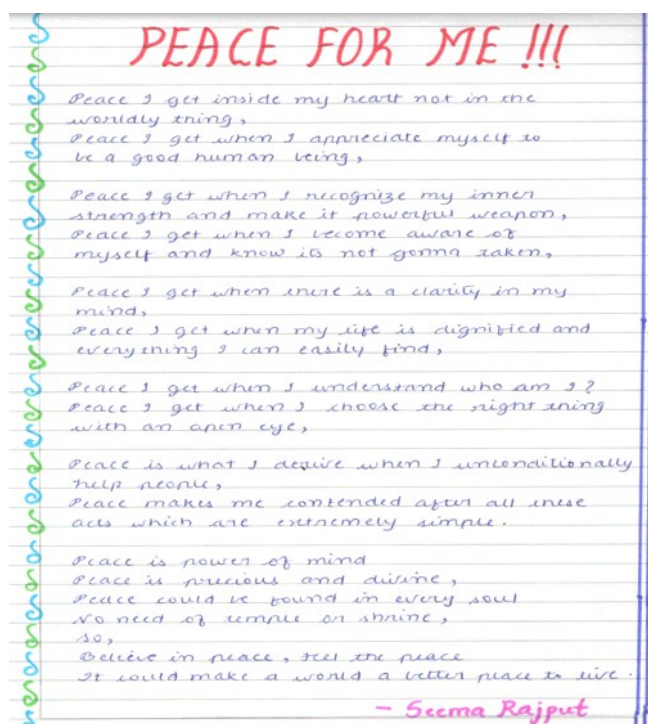 PEACE FOR ME !!!
Peace I get inside my heart not in the
worldly thing,
Peace I get when I appreciate myself to
be a good human being,
Peace I get when I recognize my inner
strength and make it powerful weapon,
Peace I get when I become aware of
myself and know its not gonna taken,
Peace I get when there is a clarity in my
mind,
Peace I get when my life is dignified and
everything I can easily find,
Peace I get when I understand who am I?
Peace I get when I choose the right thing
with an open eye,
Peace is what I desire when I unconditionally
help people,
Peace makes me contended after all these
acts which are extremely simple.
Peace is power of mind
Peace is precious and divine,
Peace could be found in every soul
No need of temple or shrine,
so,
Believe in peace, feel the peace
It could make a world a better place to live.
- Seema Rajput